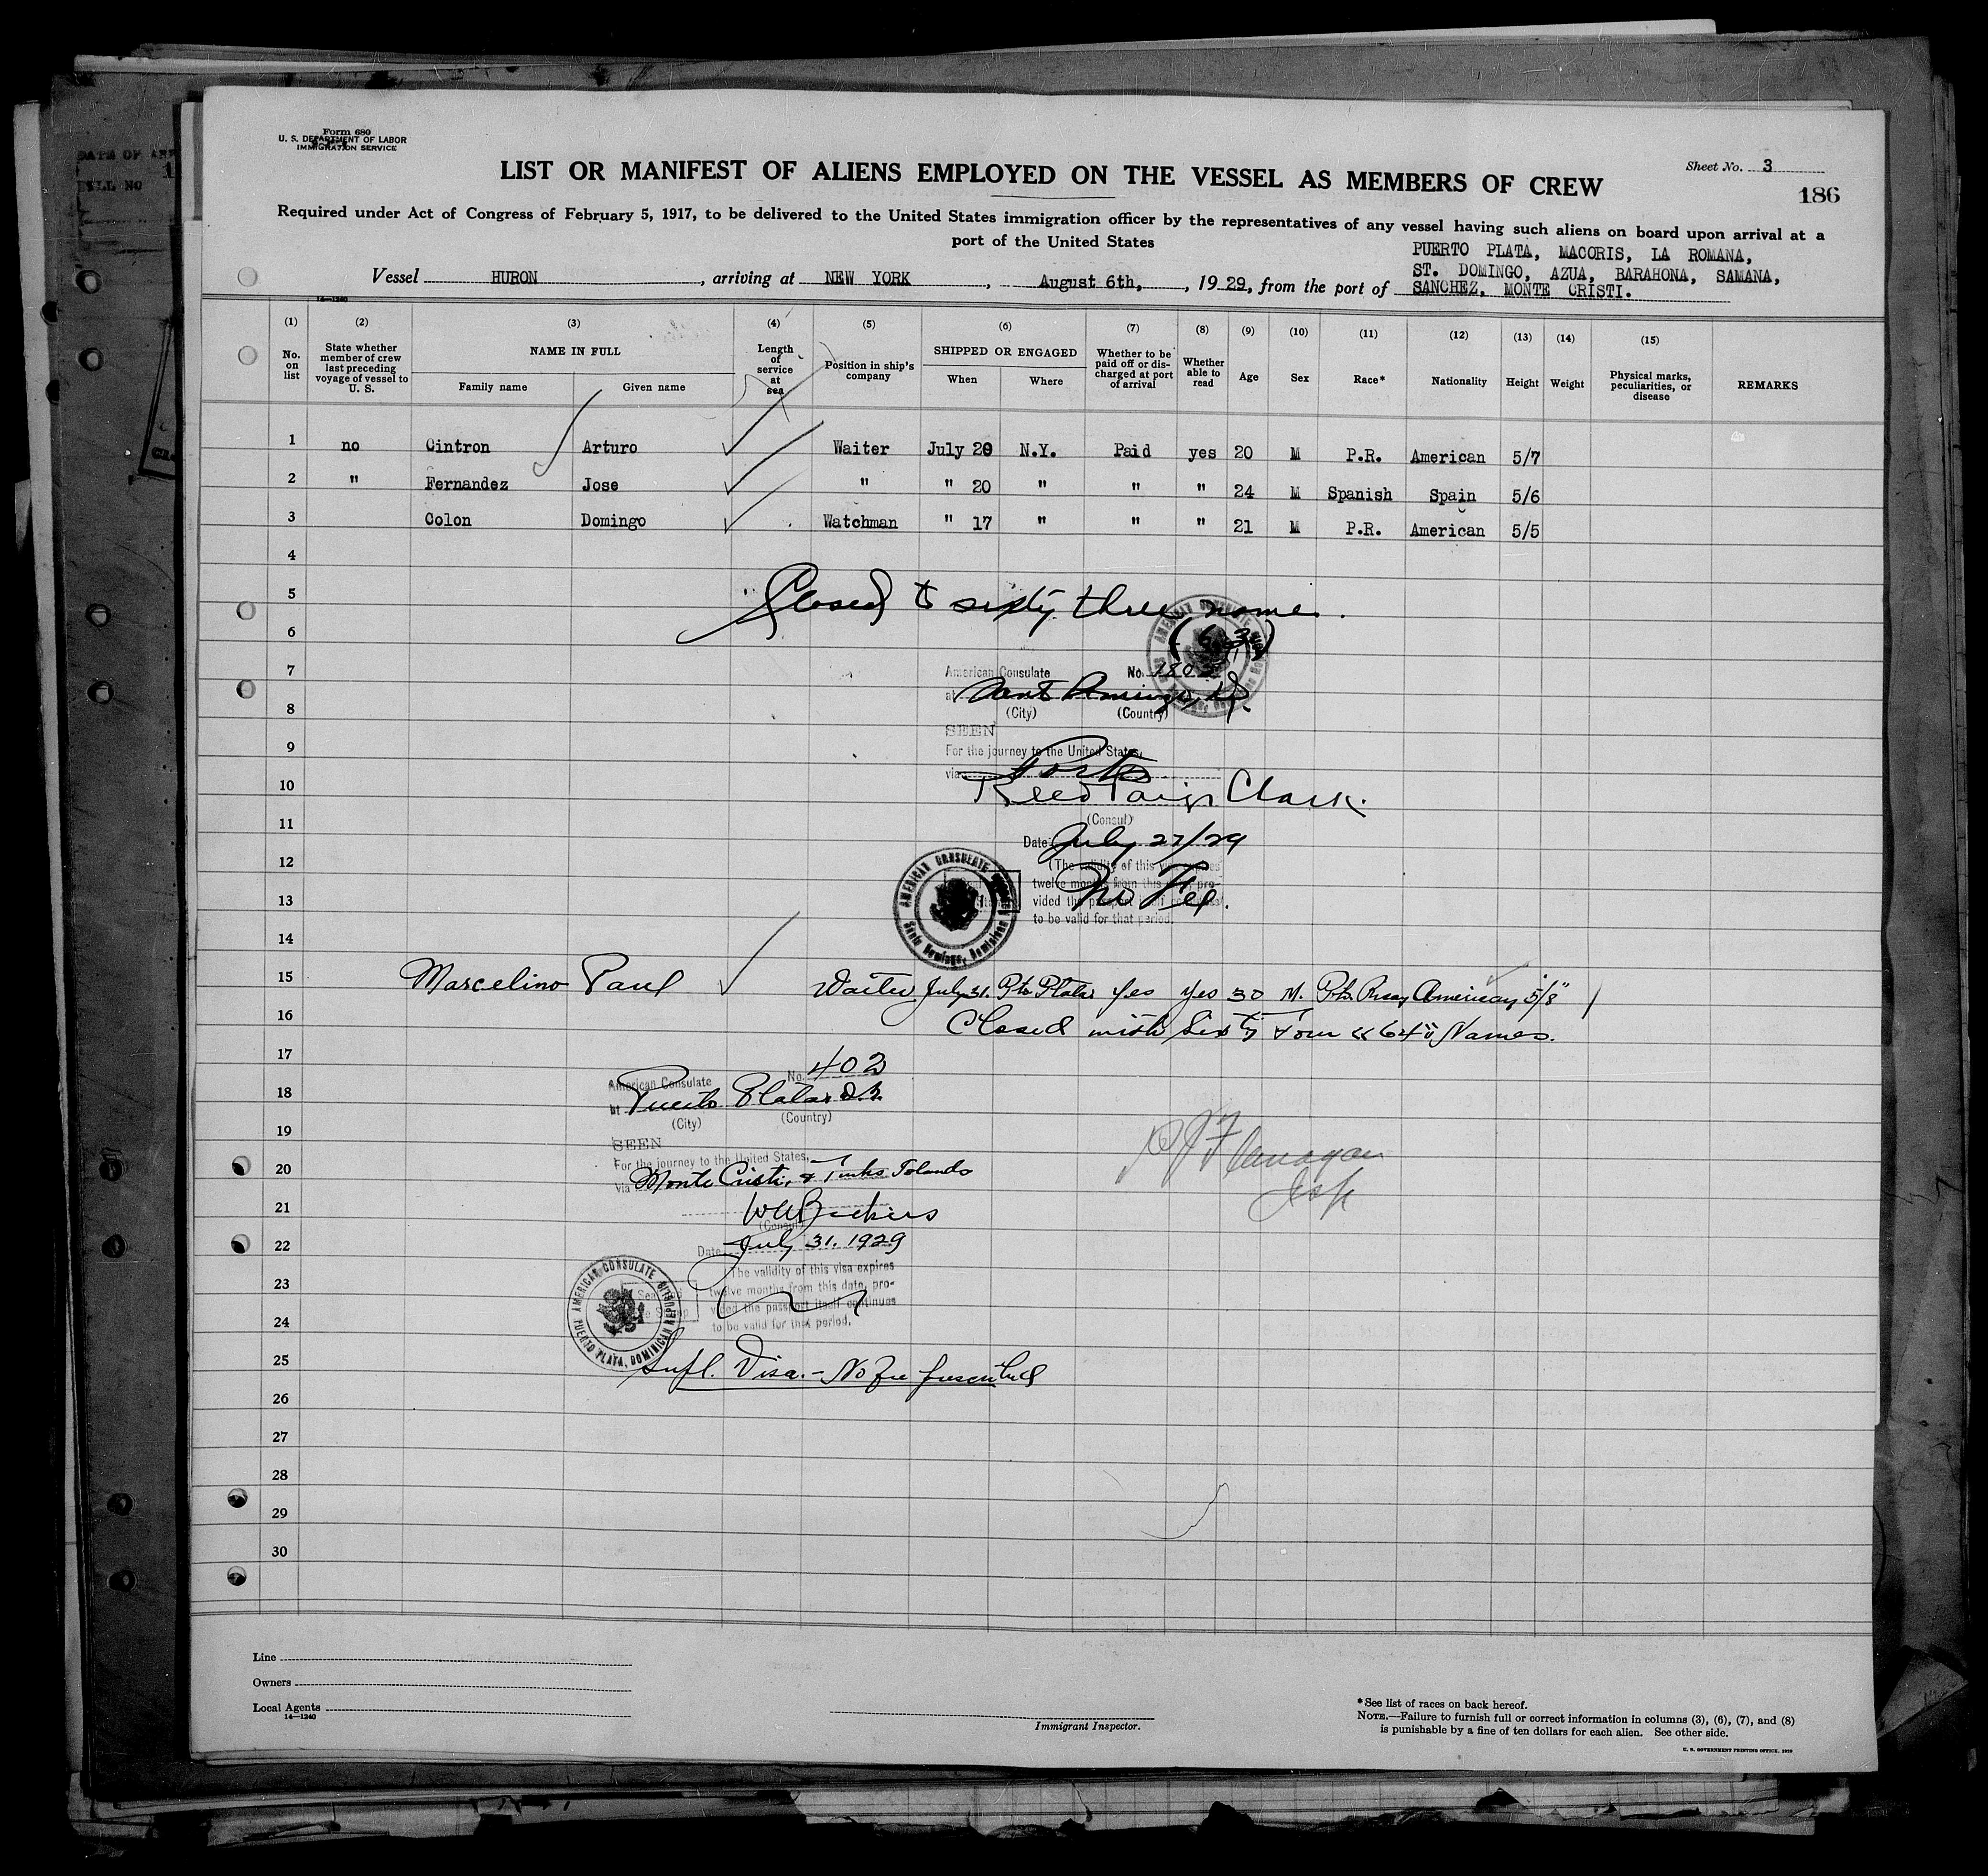 Form 680
U. S. DEPARTMENT OF LABOR
IMMIGRATION SERVICE
LIST OR MANIFEST OF ALIENS EMPLOYED ON THE VESSEL AS MEMBERS OF CREW
Sheet No. 3
186
Required under Act of Congress of February 5, 1917, to be delivered to the United States immigration officer by the representatives of any vessel having such aliens on board upon arrival at a
port of the United States
PUERTO PLATA, MACORIS, LA ROMANA,
ST. DOMINGO, AZUA, BARAHONA, SAMANA,
Vessel HURON, arriving at NEW YORK, August 6th, 1929, from the port of SANCHEZ, MONTE CRISTI.
14—1240
(1) (2) (3) (4) (5) (6) (7) (8) (9) (10) (11) (12) (13) (14) (15)
No. on list
State whether member of crew last preceding voyage of vessel to U. S.
NAME IN FULL
Family name
Given name
Length of service at sea
Position in ship's company
SHIPPED OR ENGAGED
When
Where
Whether to be paid off or discharged at port of arrival
Whether able to read
Age
Sex
Race*
Nationality
Height
Weight
Physical marks, peculiarities, or disease
REMARKS
1 no Cintron Arturo Waiter July 20 N.Y. Paid yes 20 M P.R. American 5/7
2 " Fernandez Jose " " 20 " " " 24 M Spanish Spain 5/6
3 Colon Domingo Watchman " 17 " " " 21 M P.R. American 5/5
4
5 Closed to sixty three name.
6 (63)
7 American Consulate No. 1803
at Santo Domingo, D.R.
8 (City) (Country)
SEEN
9 For the journey to the United States,
via Ports
10 Reed Paige Clark.
11 (Consul)
Date July 27/29
12 (The validity of this visa expires
twelve months from this date, pro-
13 vided the passport itself continues
to be valid for that period.
No Fee.
AMERICAN CONSULATE
Santo Domingo, Dominican
14
15 Marcelino Paul Waiter July 31. Pto Plata yes yes 30 M. Pto. Rican American 5/8"
16 Closed with Sixty Four "64" Names.
17
No. 402
American Consulate
18 at Puerto Plata, D.R.
(City) (Country)
19 SEEN
For the journey to the United States,
20 via Monte Cristi, & Turks Islands
21 (Consul)
22 Date July 31. 1929
The validity of this visa expires
23 twelve months from this date, pro-
vided the passport itself continues
24 to be valid for that period.
AMERICAN CONSULATE
PUERTO PLATA, DOMINICAN REPUBLIC
25 Supl. Visa.- No fee presented
Flanagan
Insp
26
27
28
29
30
Line
Owners
Local Agents
14—1240
Immigrant Inspector.
*See list of races on back hereof.
NOTE.—Failure to furnish full or correct information in columns (3), (6), (7), and (8)
is punishable by a fine of ten dollars for each alien. See other side.
U. S. GOVERNMENT PRINTING OFFICE.